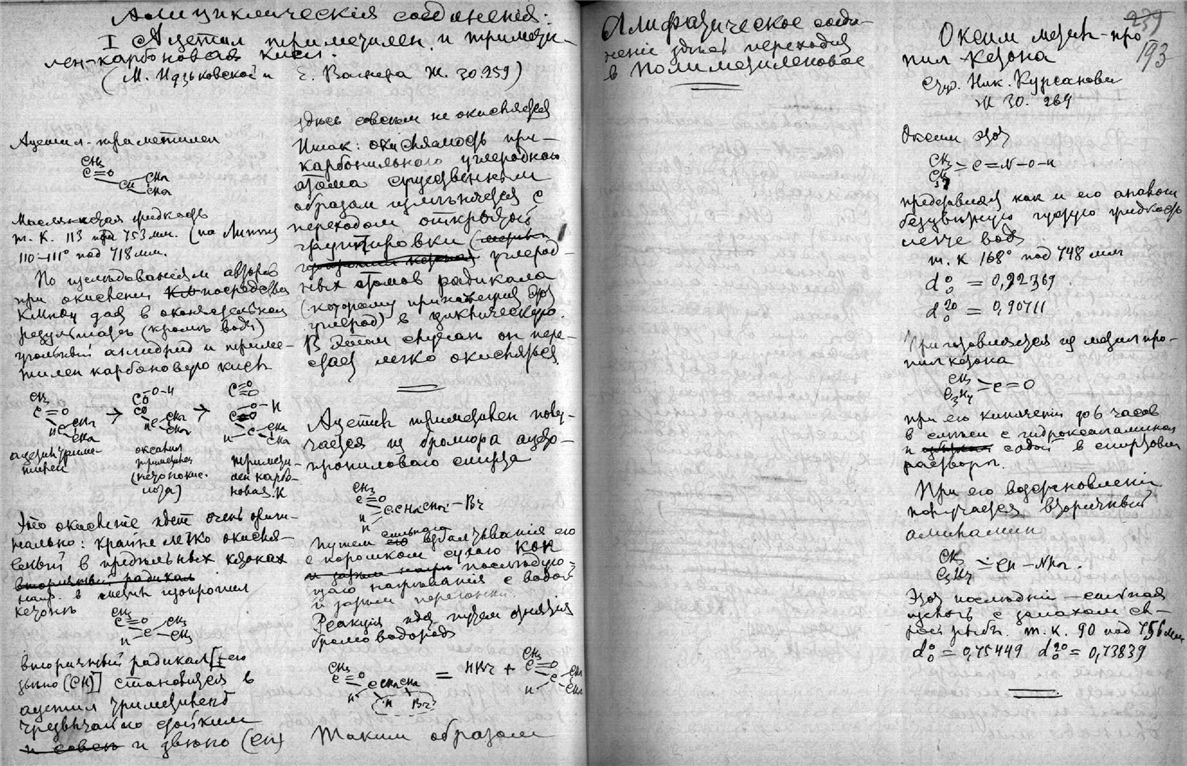 Алициклическія соединенія:
I Ацетил триметилен и тримети-
лен-карбоновая кисл
(М. Идзьковской и Е. Вагнера Ж. 30.259)
Ацетил-триметилен
CH3
C=O
CH CH2
CH2
Маслянистая жидкость
т. К. 113 под 753 мм. (по Липпу
110-111° под 718 мм.
По изследованіям авторов
при окислении посредством
KMnO4 дает в окончательном
результате (кроме воды)
угольный ангидрид и триме-
тилен карбоновую кисл
CH3
C=O
HC CH2
CH2
→
O-H
CO
CO
HC CH2
CH2
→
C=O
O-H
C=O
H-C CH2
CH2
ацетил триме-
тилен
триметилен
тримети-
лен карбо-
новая. К
Это окисление идет очень ориги-
нально: крайне легко окисля-
емый в предельных кетонах
вторичный радикал
напр. в метил изопропил
кетоне
CH3
C=O
H C CH3
CH3
вторичный радикал [его
звено (CH)] становится в
ацетил триметилене
чрезвычайно стойким
и совсем и звено (CH)
здесь совсем не окисляется
Итак: окисляемость при-
карбонильного углероднаго
атома существенным
образом изменяется с
переходом открытой
группировки
углерод-
ных атомов радикала
(которому принадлежит этот
углерод) в циклическую.
В этом случае он пере-
стает легко окисляться
Ацетил триметилен полу-
чается из бромюра ацето-
пропиловаго спирта
CH3
C=O
H C CH2CH2-Br
H
Путем сильнаго взбалтывания его
с порошком сухаго KOH
и затем нагр последую-
щаго нагревания с водой
и затем перегонки.
Реакция идет путем отнятия
бромоводорода
CH3
C=O
H C CH2CH2
(H Br)
= HBr +
CH3
C=O
H C CH2
CH2
Таким образом
Алифатическое соеди-
нение здесь переходит
в полиметиленовое
239
193
Оксим метил-про-
пил кетона
Студ. Ник. Курсанова
Ж 30. 269
Оксим этот
CH3
C3H7 >C=N-O-H
представляет как и его аналоги
безцветную густую жидкость
легче воды
т. К 168° под 748 мм
d 0 0 = 0,92369.
d 20 0 = 0,90711
Приготовляется из метил про-
пил кетона
CH3
C3H7 >C=O
при его кипячении до 6 часов
в смеси с гидроксиламином
и содой в спиртовом
растворе.
При его возстановлении
получается вторичный
амиламин
CH3
C3H7 >CH-NH2.
Этот последний - сильная
щелочь с запахом св-
рость рыбы. т. К. 90 под 756 мм
d 0 0 = 0,75449 d 20 0 = 0,73839